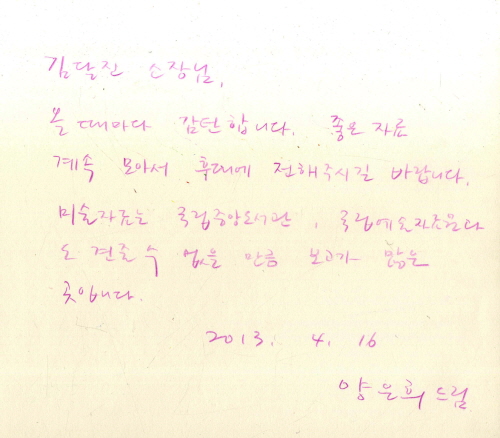 김달진 소장님,
올 때마다 감탄합니다. 좋은 자료
계속 모아서 후대에 전해주시길 바랍니다.
미술자료는 국립중앙도서관, 국립예술자료원과
도 견줄 수 없을 만큼 보고가 많은
곳입니다.
2013. 4. 16
양은희 드림